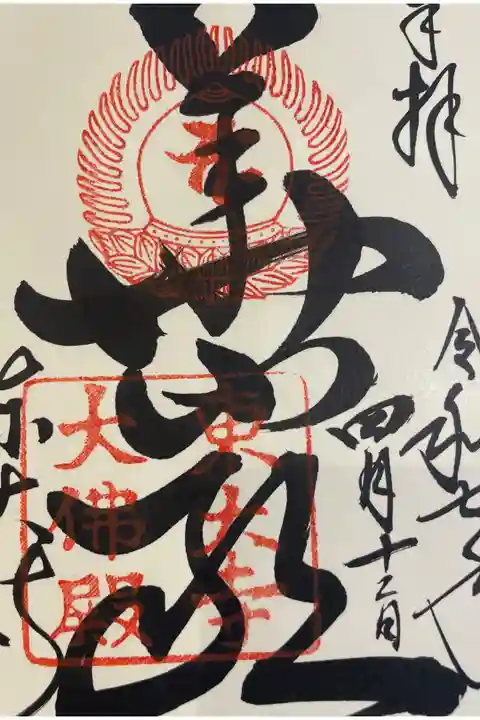 奉拝
令和七年
四月十二日
華厳
東大寺
大佛殿
東大寺